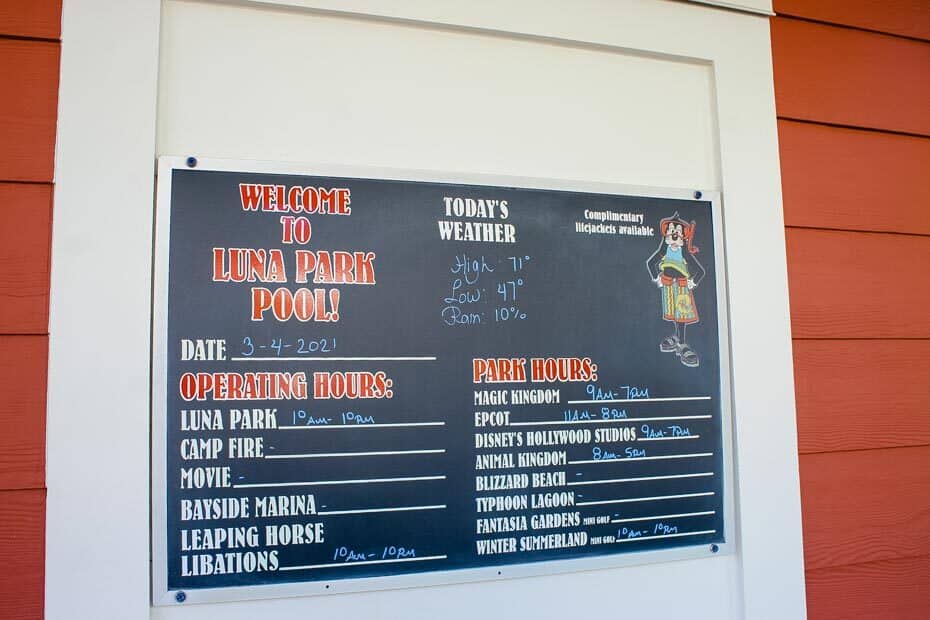 WELCOME
TO
LUNA PARK
POOL!
TODAY'S
WEATHER
High: 71°
Low: 47°
Rain: 10%
Complimentary
lifejackets available
DATE 3-4-2021
OPERATING HOURS:
LUNA PARK 10AM-10PM
CAMP FIRE -
MOVIE -
BAYSIDE MARINA -
LEAPING HORSE
LIBATIONS 10AM-10PM
PARK HOURS:
MAGIC KINGDOM 9AM-7PM
EPCOT 11AM-8PM
DISNEY'S HOLLYWOOD STUDIOS 9AM-7PM
ANIMAL KINGDOM 8AM-5PM
BLIZZARD BEACH -
TYPHOON LAGOON -
FANTASIA GARDENS MINI GOLF -
WINTER SUMMERLAND MINI GOLF 10AM-10PM